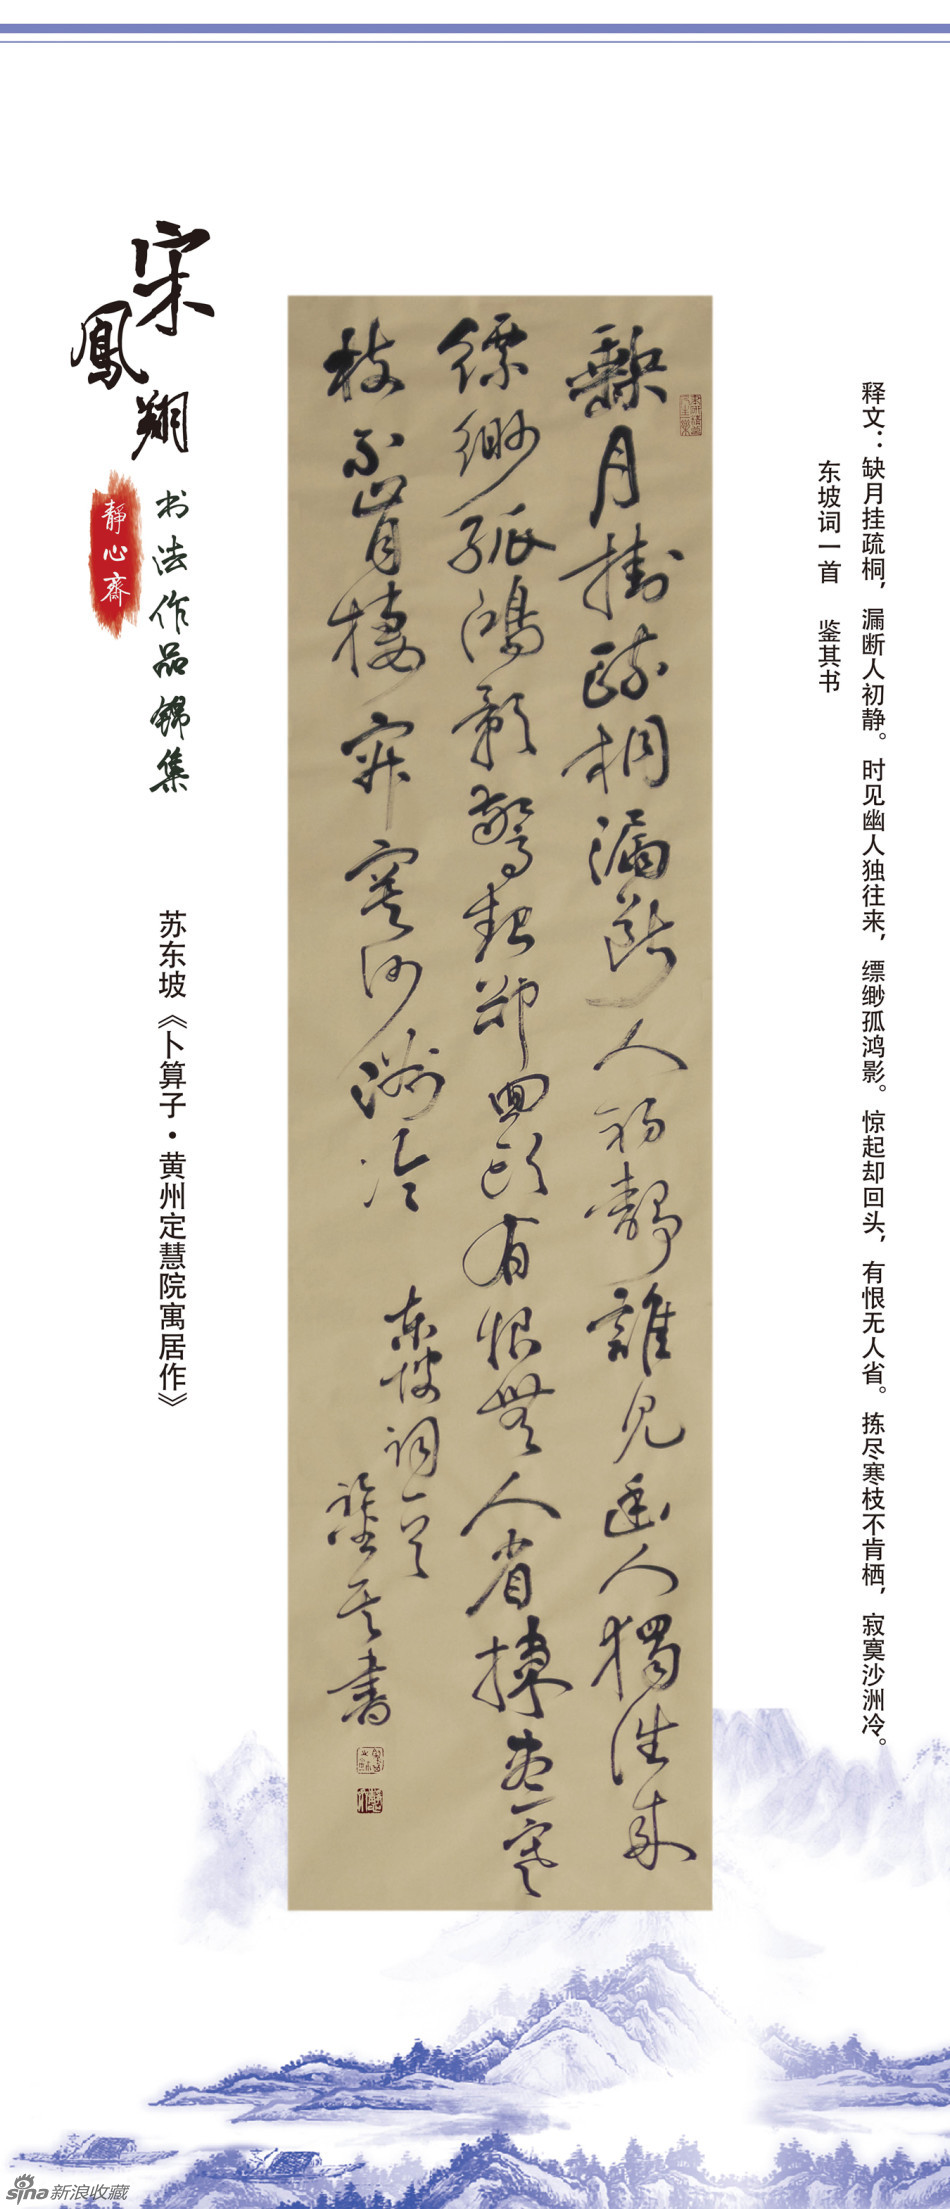 释文：缺月挂疏桐，漏断人初静。时见幽人独往来，缥缈孤鸿影。惊起却回头，有恨无人省。拣尽寒枝不肯栖，寂寞沙洲冷。
东坡词一首　鉴其书
缺月掛疏桐漏斷人初靜誰見幽人獨往來
縹緲孤鴻影驚起卻回頭有恨無人省揀盡寒
枝不肯棲寂寞沙洲冷
東坡詞一首
鑒其書
宋鳳翔
书法作品锦集
靜心齋
苏东坡《卜算子·黄州定慧院寓居作》
sina新浪收藏